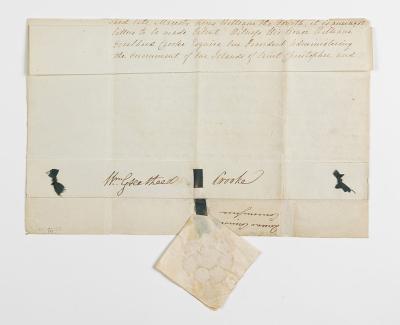 said late Majesty King William the Fourth, it is amongst
letters to be made Patent. Witness His Grace William
Greathead Crooke Esquire our President administering
the Government of our Islands of Saint Christopher and
Wm Greatheed Crooke